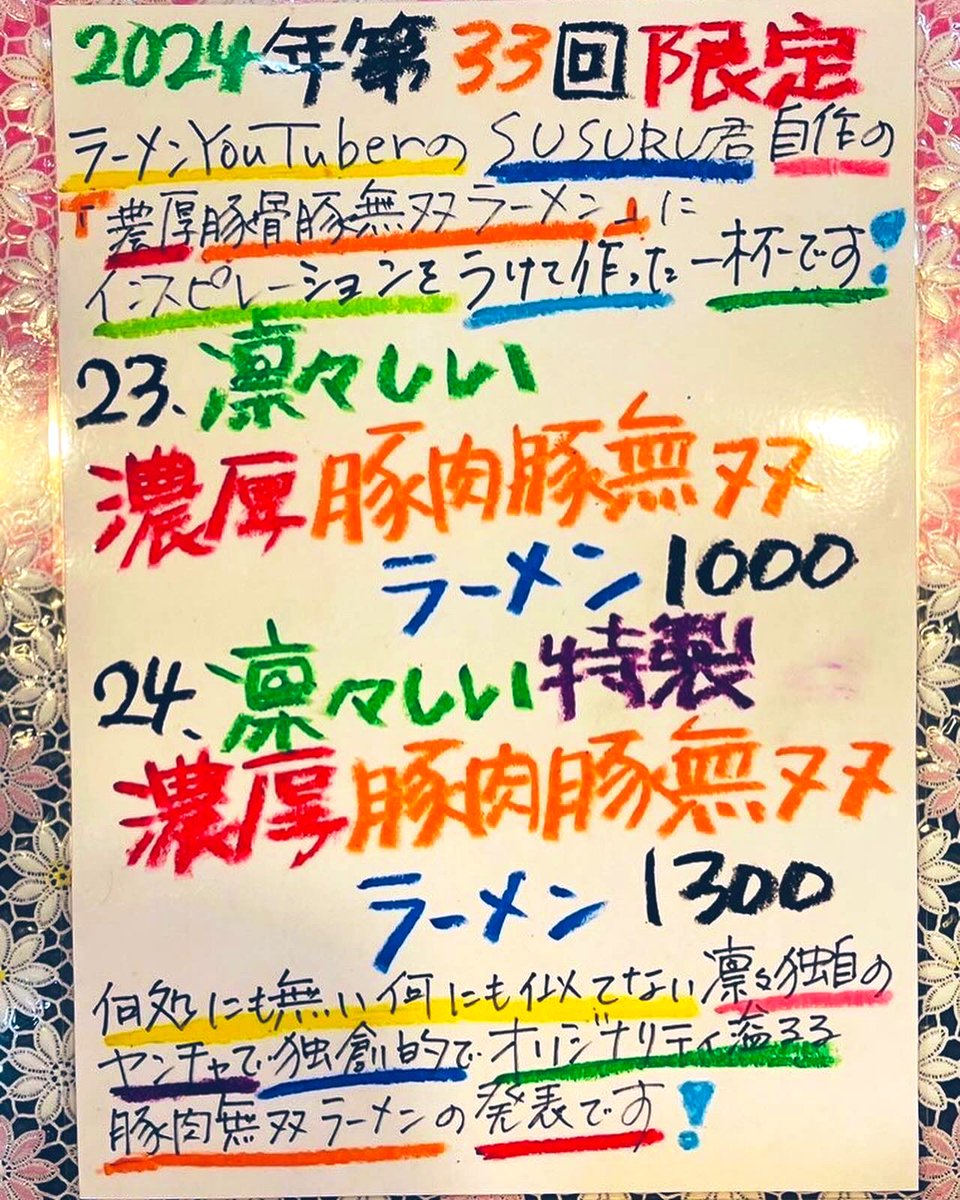 2024年第33回限定
ラーメンYouTuberのSUSURU君自作の
「濃厚豚骨豚無双ラーメン」に
インスピレーションをうけて作った一杯です!
23、凛々しい
濃厚豚肉豚無双
ラーメン1000
24、凛々しい特製
濃厚豚肉豚無双
ラーメン1300
何処にも無い何にも似てない凛々独自の
ヤンチャで独創的でオリジナリティ溢るる
豚肉無双ラーメンの発表です!